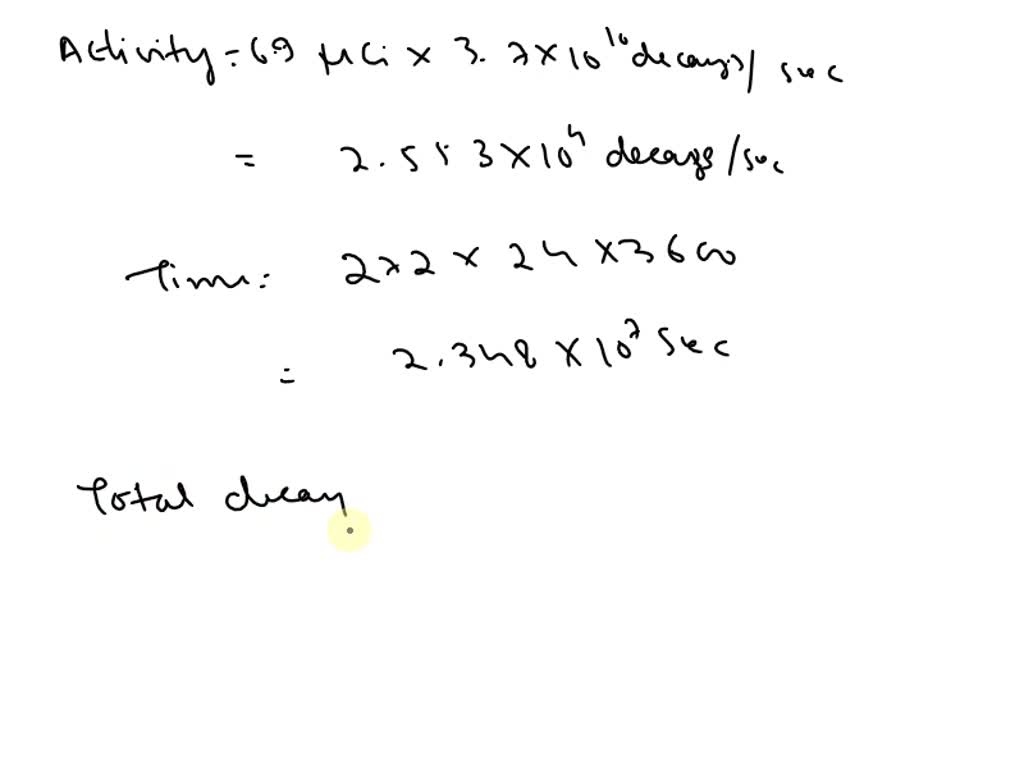 Activity = 69 μCi × 3.7×10¹⁰ decays/sec
= 2.553×10⁴ decays/sec
Time: 272 × 24 × 3600
= 2.348 × 10⁷ sec
Total decay